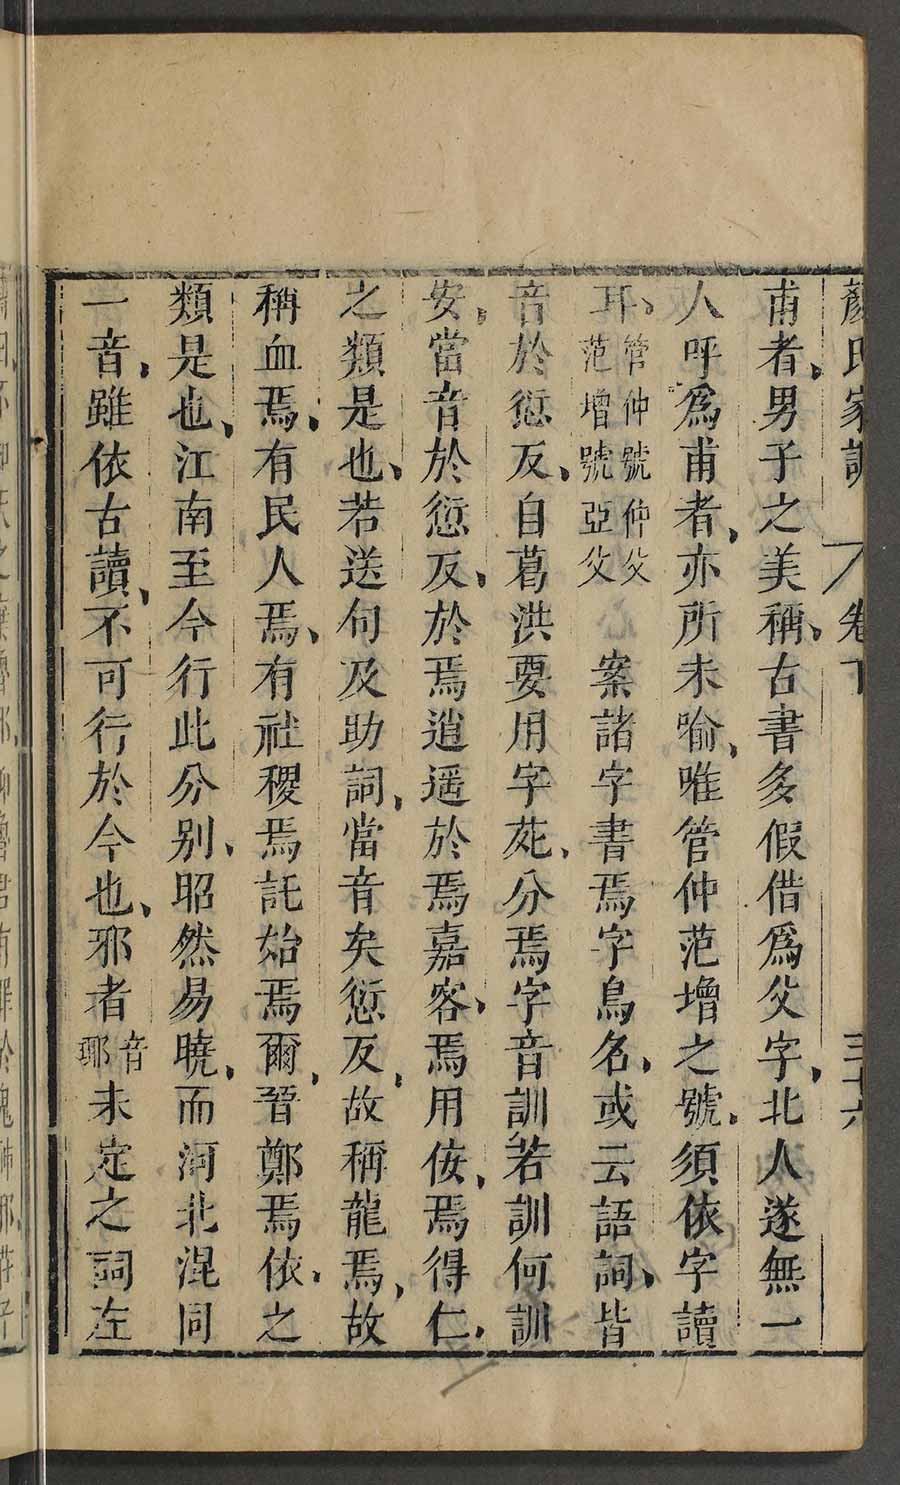 顏氏家訓 卷下 三十六
甫者、男子之美稱、古書多假借爲父字、北人遂無一
人呼爲甫者、亦所未喻、唯管仲范增之號、須依字讀
耳、管仲號仲父范增號亞父 案諸字書焉字鳥名、或云語詞、皆
音於愆反、自葛洪要用字苑、分焉字音訓若訓何訓
安、當音於愆反、於焉逍遥於焉嘉客、焉用佞、焉得仁、
之類是也、若送句及助詞、當音矣愆反、故稱龍焉、故
稱血焉、有民人焉、有社稷焉託始焉爾、晉鄭焉依、之
類是也、江南至今行此分别、昭然易曉、而河北混同
一音、雖依古讀、不可行於今也、邪者音瑘未定之詞左